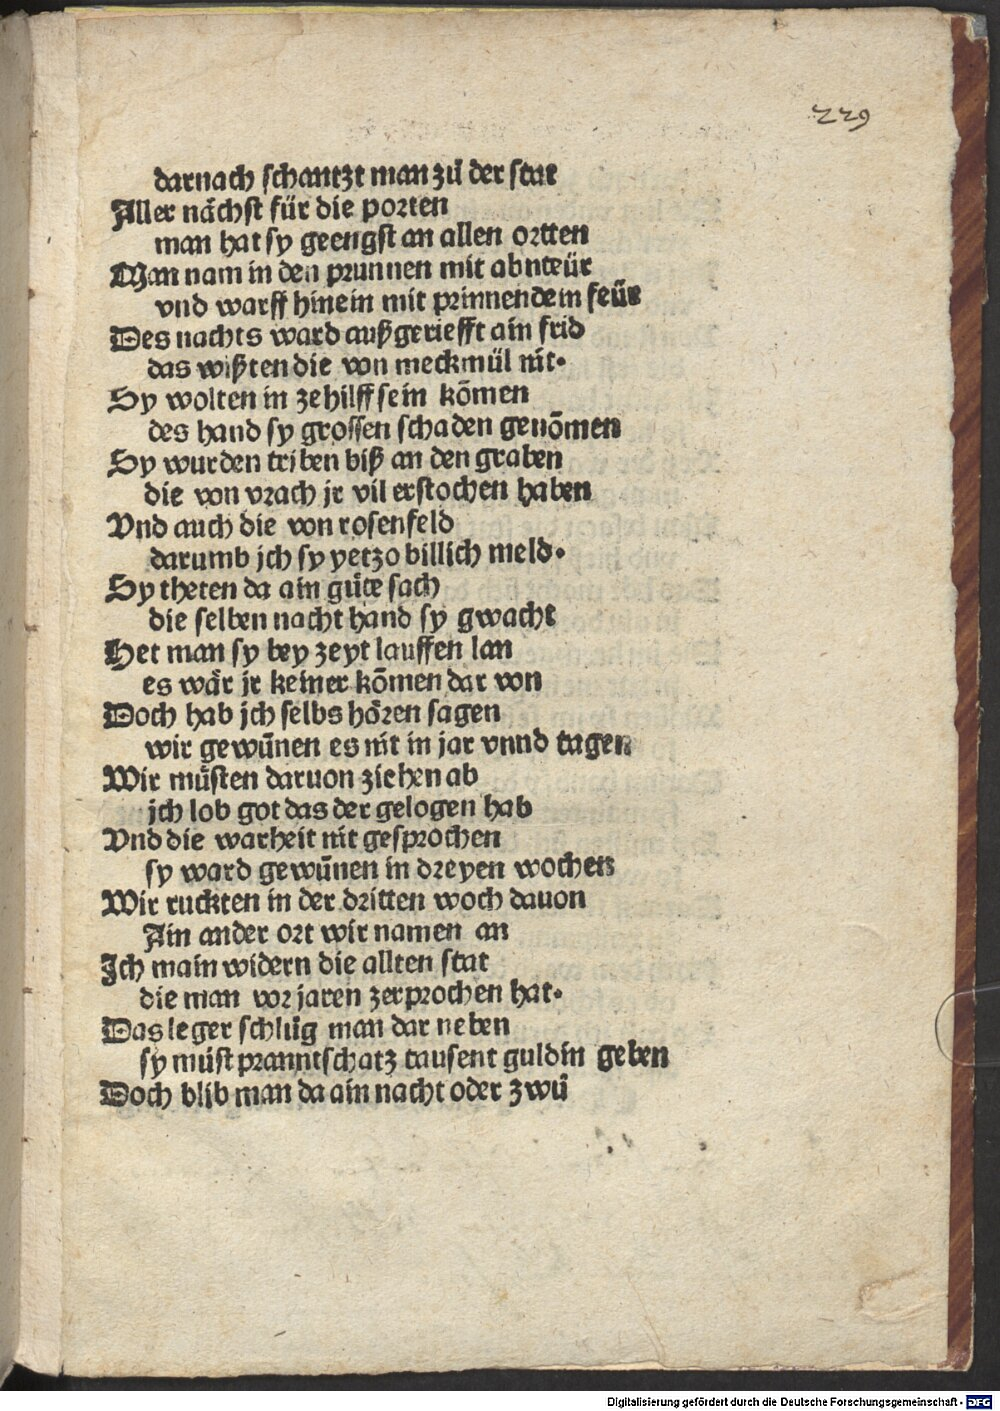 229
darnach schantzt man zů der stat
Aller nächst für die porten
man hat sy geengst an allen ortten
Man nam in den prunnen mit abnteür
vnd warff hinein mit prinnendem feür
Des nachts ward außgeriefft ain frid
das wißten die von meckmül nit.
Sy wolten in ze hilff sein kōmen
des hand sy grossen schaden genōmen
Sy wurden triben biß an den graben
die von vrach jr vil erstochen haben
Vnd auch die von rosenfeld
darumb jch sy yetzo billich meld.
Sy theten da ain gůte sach
die selben nacht hand sy gwacht
Het man sy bey zeyt lauffen lan
es wär jr keiner kōmen dar von
Doch hab jch selbs hören sagen
wir gewūnen es nit in jar vnnd tagen
Wir můsten daruon ziehen ab
jch lob got das der gelogen hab
Vnd die warheit nit gesprochen
sy ward gewūnen in dreyen wochen
Wir ruckten in der dritten woch dauon
Ain ander ort wir namen an
Ich main widern die allten stat
die man vor jaren zerprochen hat.
Das leger schlůg man dar neben
sy můst pranntschatz tausent guldin geben
Doch blib man da ain nacht oder zwů
Digitalisierung gefördert durch die Deutsche Forschungsgemeinschaft - DFG